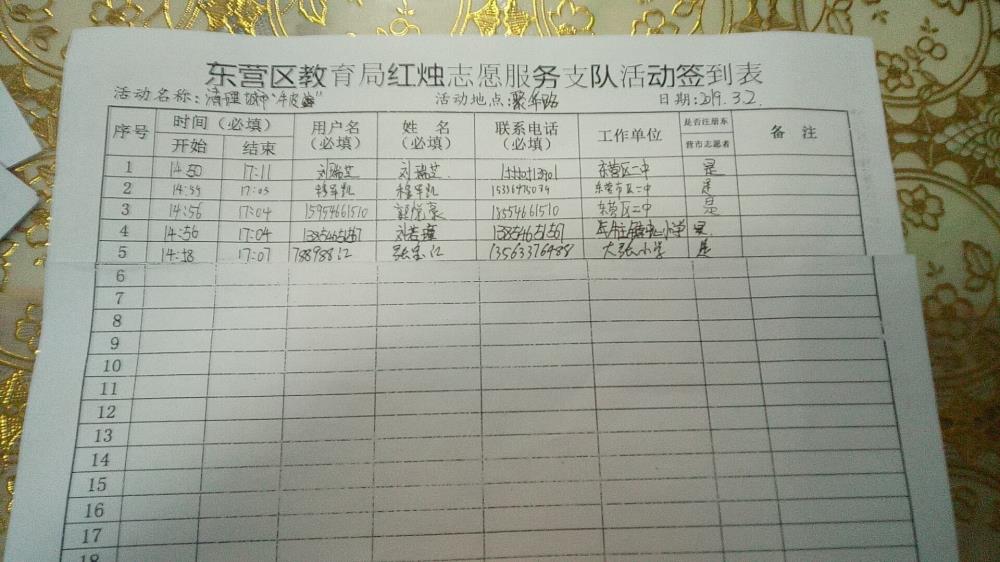 东营区教育局红烛志愿服务支队活动签到表
活动名称：清理城市“牛皮癣” 活动地点： 日期：2019.3.2.
序号 时间（必填） 用户名（必填） 姓名（必填） 联系电话（必填） 工作单位 是否注册东营市志愿者 备注
开始 结束
1 14:50 17:11 刘瑞芝 刘瑞芝 东营区二中 是
2 17:05 东营市区二中 是
3 14:56 17:04 15954661510 18554661510 东营区二中 是
4 14:56 17:04 刘若瑾 小学 是
5 14:58 17:07 13563376488 大张小学 是
6
7
8
9
10
11
12
13
14
15
16
17
18